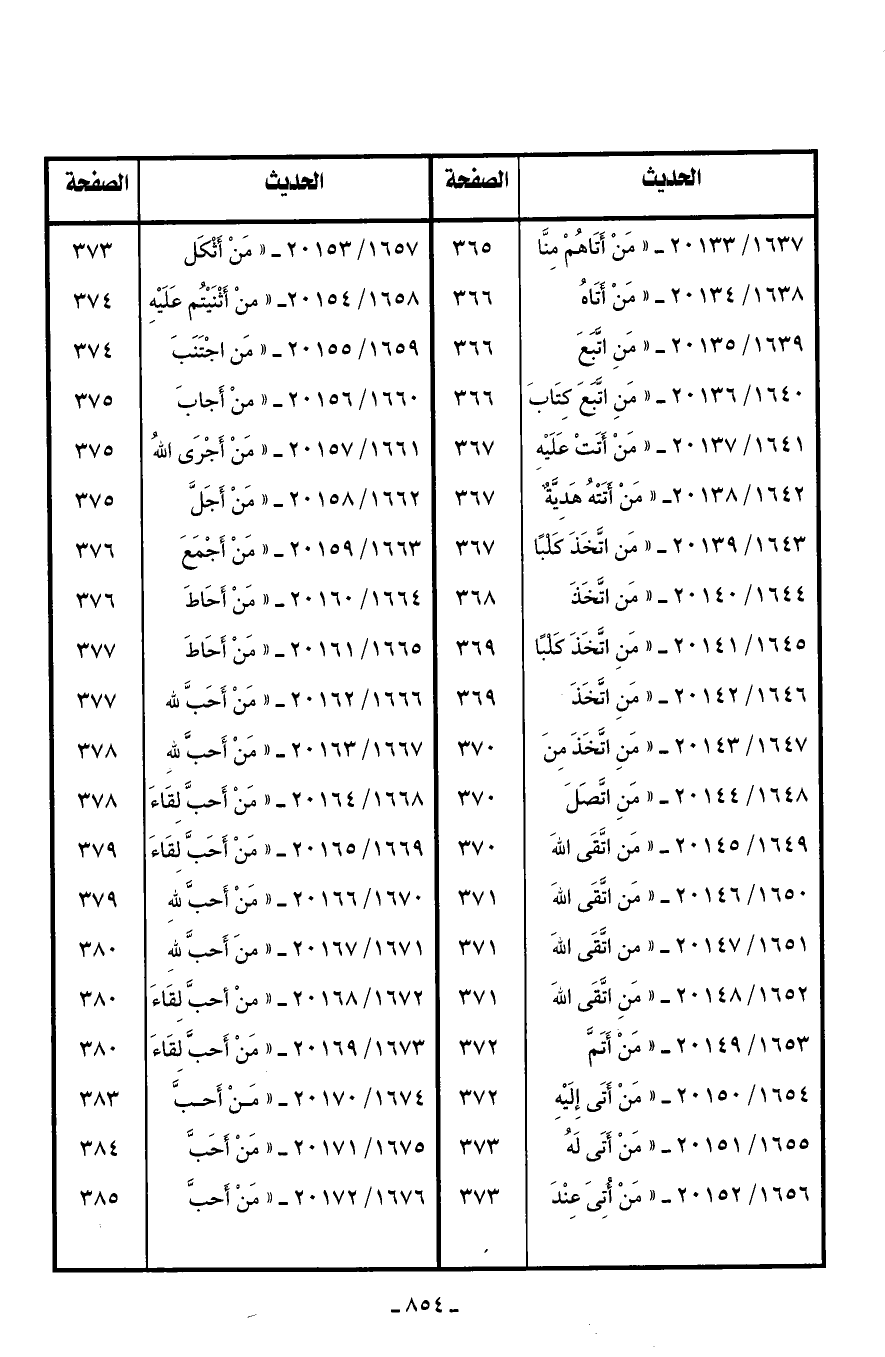 الحديث الصفحة الحديث الصفحة
١٦٣٧/ ٢٠١٣٣ ـ « مَنْ أَتَاهُمْ مِنَّا ٣٦٥ ١٦٥٧/ ٢٠١٥٣ ـ « مَنْ أَثْكَل ٣٧٣
١٦٣٨/ ٢٠١٣٤ ـ « مَنْ أَتَاهُ ٣٦٦ ١٦٥٨/ ٢٠١٥٤ ـ « منْ أَثْنَيْتُم عَلَيْهِ ٣٧٤
١٦٣٩/ ٢٠١٣٥ ـ « مَنِ اتَّبَعَ ٣٦٦ ١٦٥٩/ ٢٠١٥٥ ـ « مَن اجْتَنَبَ ٣٧٤
١٦٤٠/ ٢٠١٣٦ ـ « مَنِ اتَّبَعَ كِتَابَ ٣٦٦ ١٦٦٠/ ٢٠١٥٦ ـ « منْ أَجابَ ٣٧٥
١٦٤١/ ٢٠١٣٧ ـ « مَنْ أَتَتْ عَلَيْهِ ٣٦٧ ١٦٦١/ ٢٠١٥٧ ـ « مَنْ أَجْرَى اللهُ ٣٧٥
١٦٤٢/ ٢٠١٣٨ ـ « مَنْ أَتَتْهُ هَديَّةٌ ٣٦٧ ١٦٦٢/ ٢٠١٥٨ ـ « مَنْ أَجَلَّ ٣٧٥
١٦٤٣/ ٢٠١٣٩ ـ « مَنِ اتَّخَذَ كَلْبًا ٣٦٧ ١٦٦٣/ ٢٠١٥٩ ـ « مَنْ أَجْمَعَ ٣٧٦
١٦٤٤/ ٢٠١٤٠ ـ « مَنِ اتَّخَذَ ٣٦٨ ١٦٦٤/ ٢٠١٦٠ ـ « مَنْ أَحَاطَ ٣٧٦
١٦٤٥/ ٢٠١٤١ ـ « مَنِ اتَّخَذَ كَلْبًا ٣٦٩ ١٦٦٥/ ٢٠١٦١ ـ « مَنْ أَحَاطَ ٣٧٧
١٦٤٦/ ٢٠١٤٢ ـ « مَنِ اتَّخَذَ ٣٦٩ ١٦٦٦/ ٢٠١٦٢ ـ « مَنْ أَحَبَّ لله ٣٧٧
١٦٤٧/ ٢٠١٤٣ ـ « مَنِ اتَّخَذَ مِنَ ٣٧٠ ١٦٦٧/ ٢٠١٦٣ ـ « مَنْ أَحبَّ للهِ ٣٧٨
١٦٤٨/ ٢٠١٤٤ ـ « مَنِ اتَّصَلَ ٣٧٠ ١٦٦٨/ ٢٠١٦٤ ـ « مَنْ أَحبَّ لقَاءَ ٣٧٨
١٦٤٩/ ٢٠١٤٥ ـ « مَنِ اتَّقَى اللهَ ٣٧٠ ١٦٦٩/ ٢٠١٦٥ ـ « مَنْ أَحَبَّ لقَاءَ ٣٧٩
١٦٥٠/ ٢٠١٤٦ ـ « مَنِ اتَّقَى اللهَ ٣٧١ ١٦٧٠/ ٢٠١٦٦ ـ « مَنْ أَحبَّ للهِ ٣٧٩
١٦٥١/ ٢٠١٤٧ ـ « من اتَّقَى اللهَ ٣٧١ ١٦٧١/ ٢٠١٦٧ ـ « منَ أَحبَّ للهِ ٣٨٠
١٦٥٢/ ٢٠١٤٨ ـ « مَنِ اتَّقَى اللهَ ٣٧١ ١٦٧٢/ ٢٠١٦٨ ـ « منْ أحبَّ لقَاءَ ٣٨٠
١٦٥٣/ ٢٠١٤٩ ـ « مَنْ أَتَمَّ ٣٧٢ ١٦٧٣/ ٢٠١٦٩ ـ « مَنْ أَحبَّ لِقَاءَ ٣٨٠
١٦٥٤/ ٢٠١٥٠ ـ « مَنْ أَتَى إِلَيْهِ ٣٧٢ ١٦٧٤/ ٢٠١٧٠ ـ « مَـنْ أَحـبَّ ٣٨٣
١٦٥٥/ ٢٠١٥١ ـ « مَنْ أَتَى لَهُ ٣٧٣ ١٦٧٥/ ٢٠١٧١ ـ « مَنْ أَحَبَّ ٣٨٤
١٦٥٦/ ٢٠١٥٢ ـ « مَنْ أُتِىَ عِنْدَ ٣٧٣ ١٦٧٦/ ٢٠١٧٢ ـ « مَنْ أَحبَّ ٣٨٥
ـ ٨٥٤ ـ